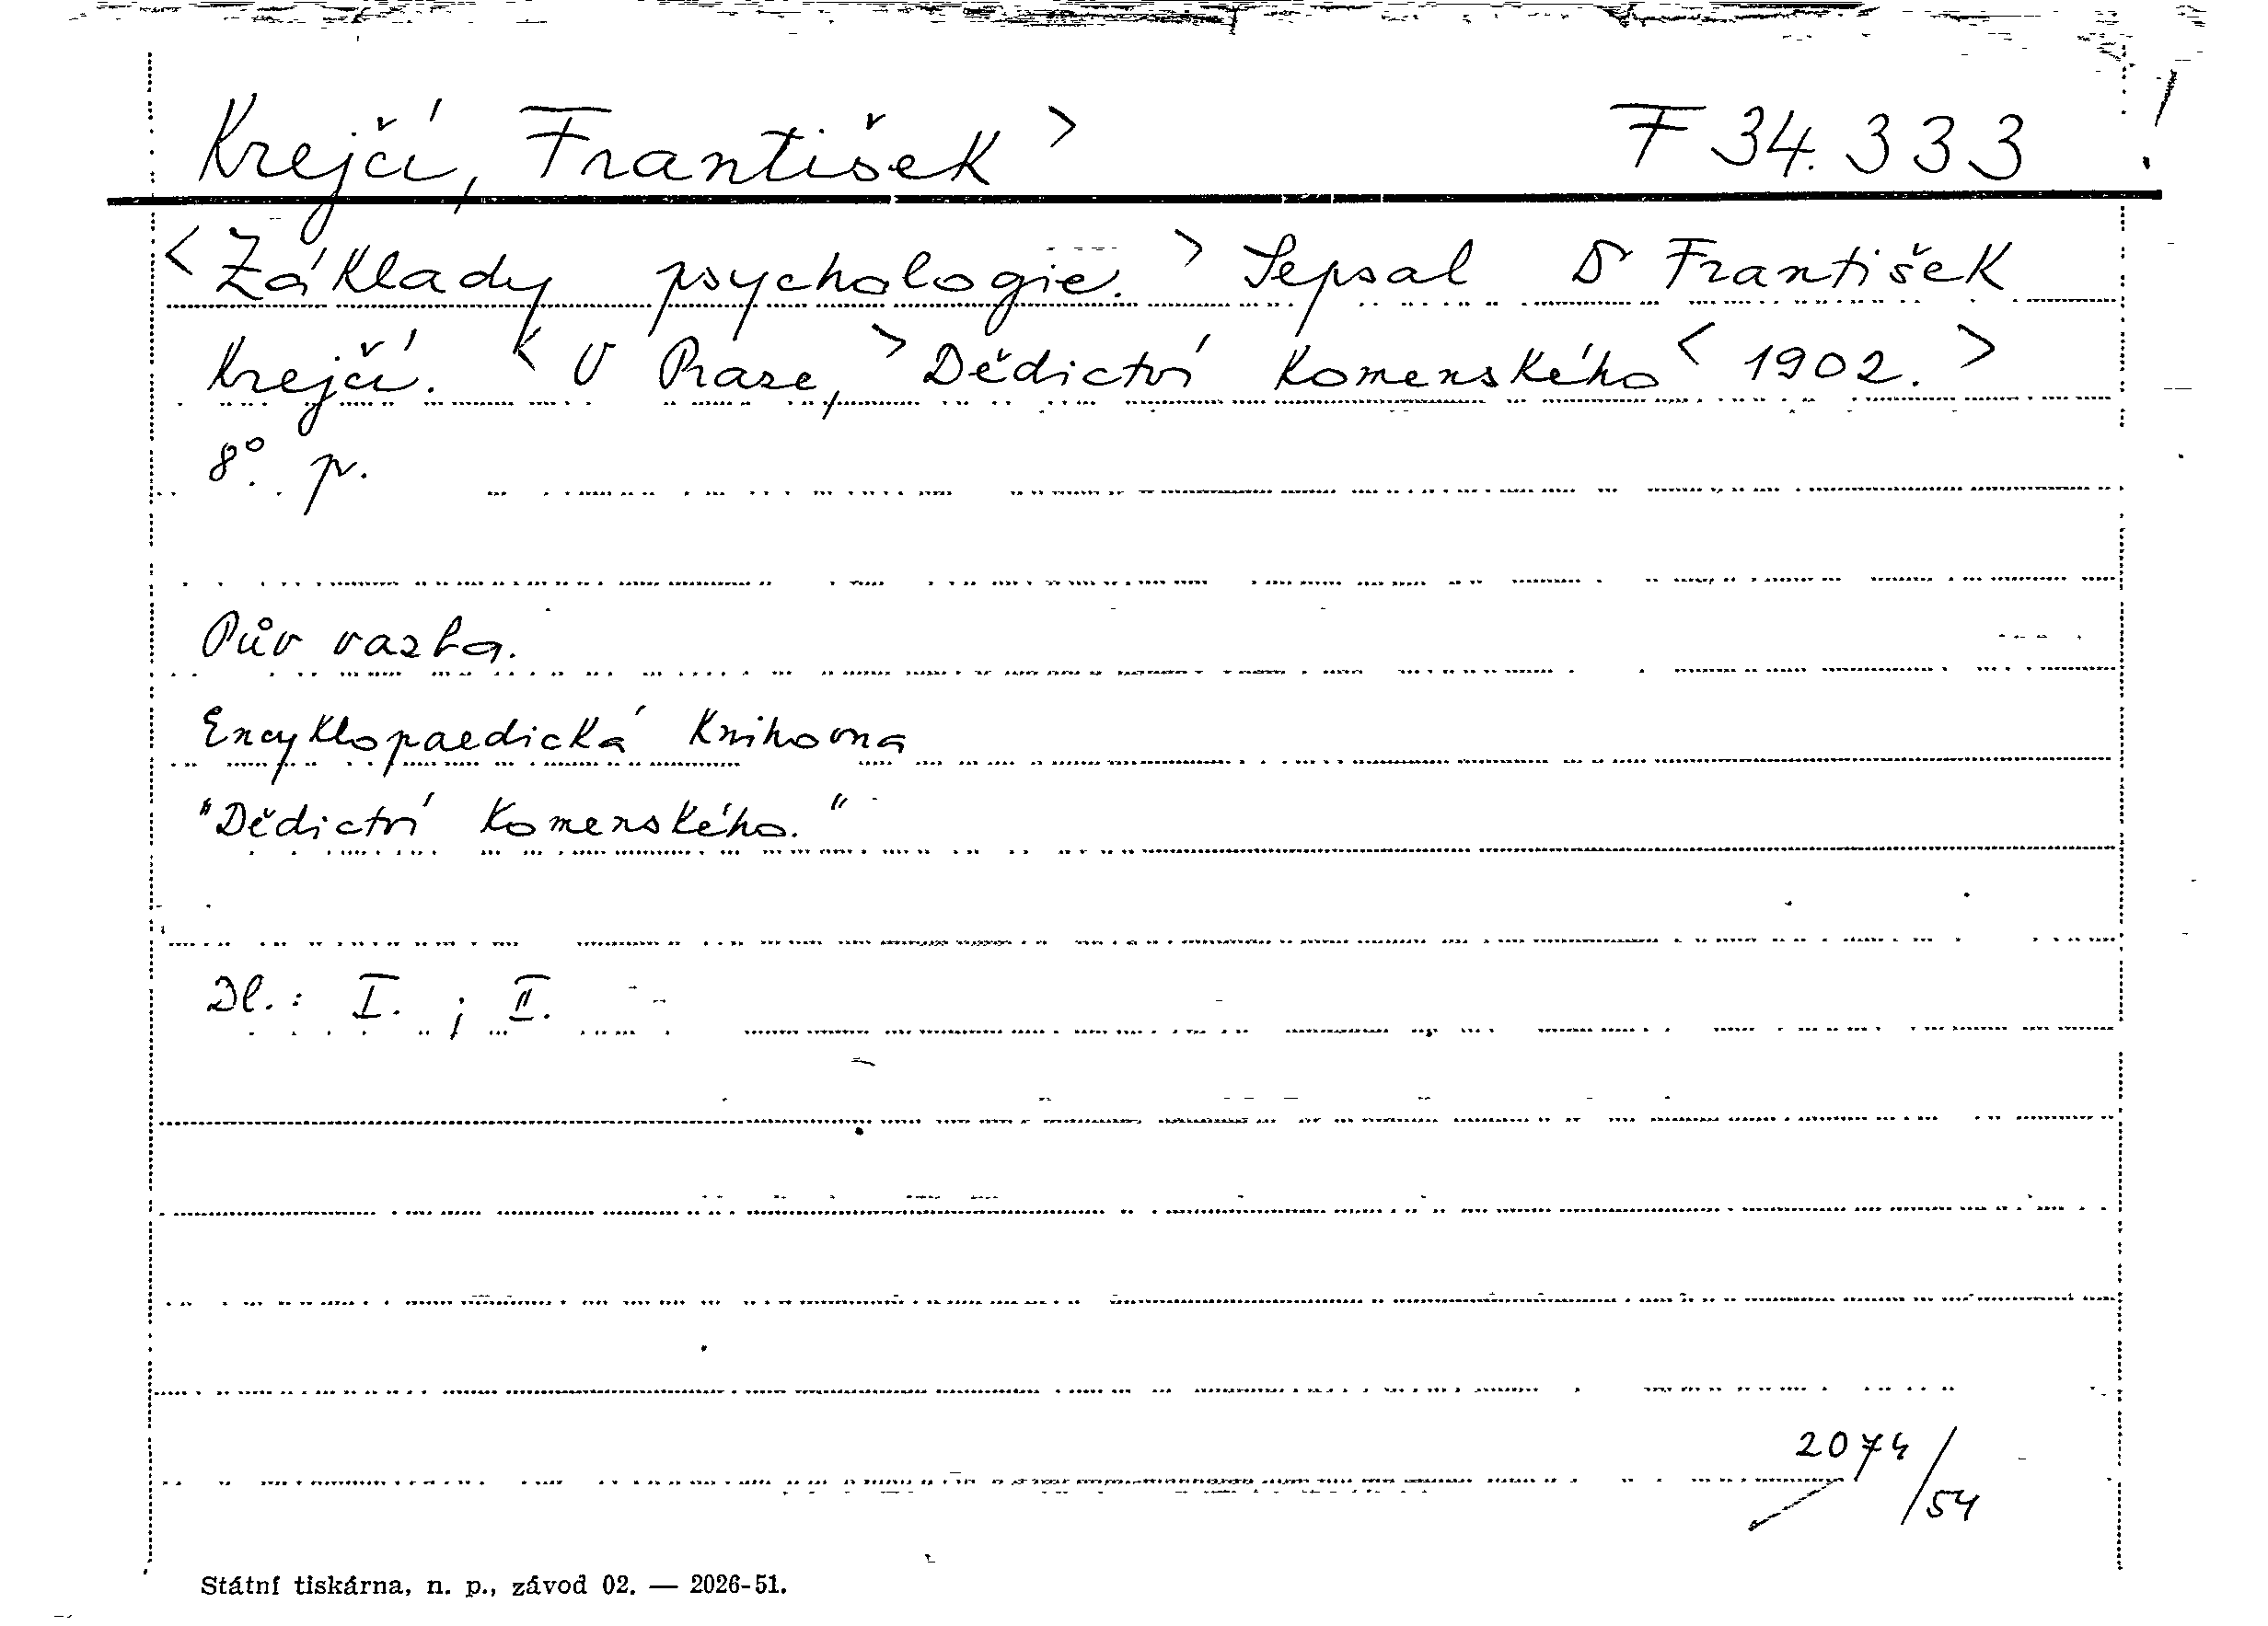 Krejčí, František > F 34.333 !
< Základy psychologie. > Sepsal Dr František
Krejčí. < V Praze, > Dědictví Komenského < 1902. >
8°. p.
Pův vazba.
Encyklopaedická Knihovna
"Dědictví Komenského."
Dl.: I. ; II.
2074/54
Státní tiskárna, n. p., závod 02. — 2026-51.